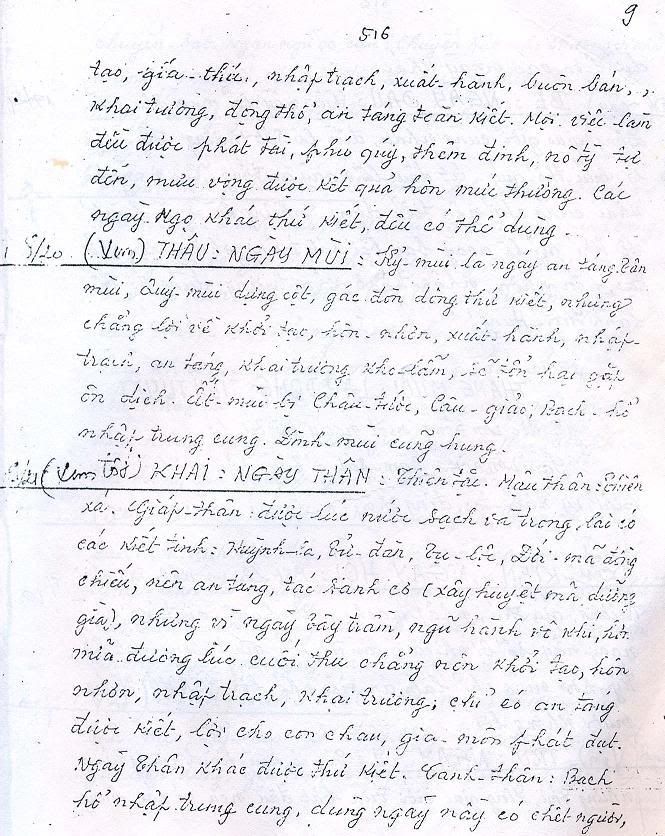 9
516
tạo, giá-thú, nhập trạch, xuất-hành, buôn bán,
Khai trường, động thổ, an táng toàn Kiết. Mọi việc làm
đều được phát tài, phú quý, thêm đinh, nô tỳ tự
đến, mưu vọng được kết quả hơn mức thường. Các
ngày Ngọ Khác thứ Kiết, đều có thể dùng.
(Xem) THÂU: NGÀY MÙI: Kỷ-mùi là ngày an táng, Tân
mùi, Quý-mùi dựng cột, gác đòn dông thứ Kiết, nhưng
chẳng lợi về Khởi tạo, hôn-nhơn, xuất-hành, nhập-
trạch, an táng, Khai trường, sẽ tổn hại gặp
ôn dịch. Ất-mùi bị Châu-tước, Câu-giảo, Bạch-hổ
nhập trung cung. Đinh-mùi cũng hung.
(Xem KHAI: NGÀY THÂN: Thiên tặc. Mậu thân: Thiên
xá. Giáp-thân: được lúc nước sạch và trong, lại có
các Kiết tinh: Huỳnh-la, Tử-đàn, Tụ-lộc, mã đồng
chiếu, nên an táng, tác sanh cơ (xây huyệt mã dưỡng
già), nhưng vì ngày Bây trầm, ngũ hành vô khí,
mià đương lúc cuối thu chẳng nên Khởi tạo, hôn
nhơn, nhập trạch, Khai trường; chỉ có an táng
được Kiết, lợi cho con cháu, gia-môn phát đạt.
Ngày Thân Khác được thứ Kiết. Canh-thân: Bạch
hổ nhập trung cung, dùng ngày nầy có chết người,